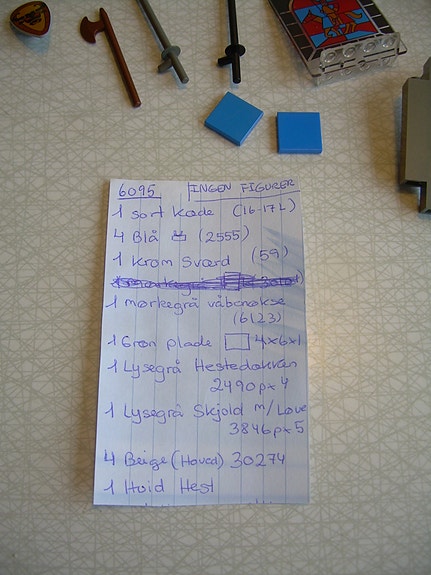 6095 INGEN FIGURER
1 sort Kæde (16-17L)
4 Blå (2555)
1 Krom Sværd (59)
1 mørkegrå våbenøkse
(6123)
1 Grøn plade 4x6x1
1 Lysegrå Hestedækken
2490px4
1 Lysegrå Skjold m/Løve
3846px5
4 Beige (Hoved) 30274
1 Hvid Hest